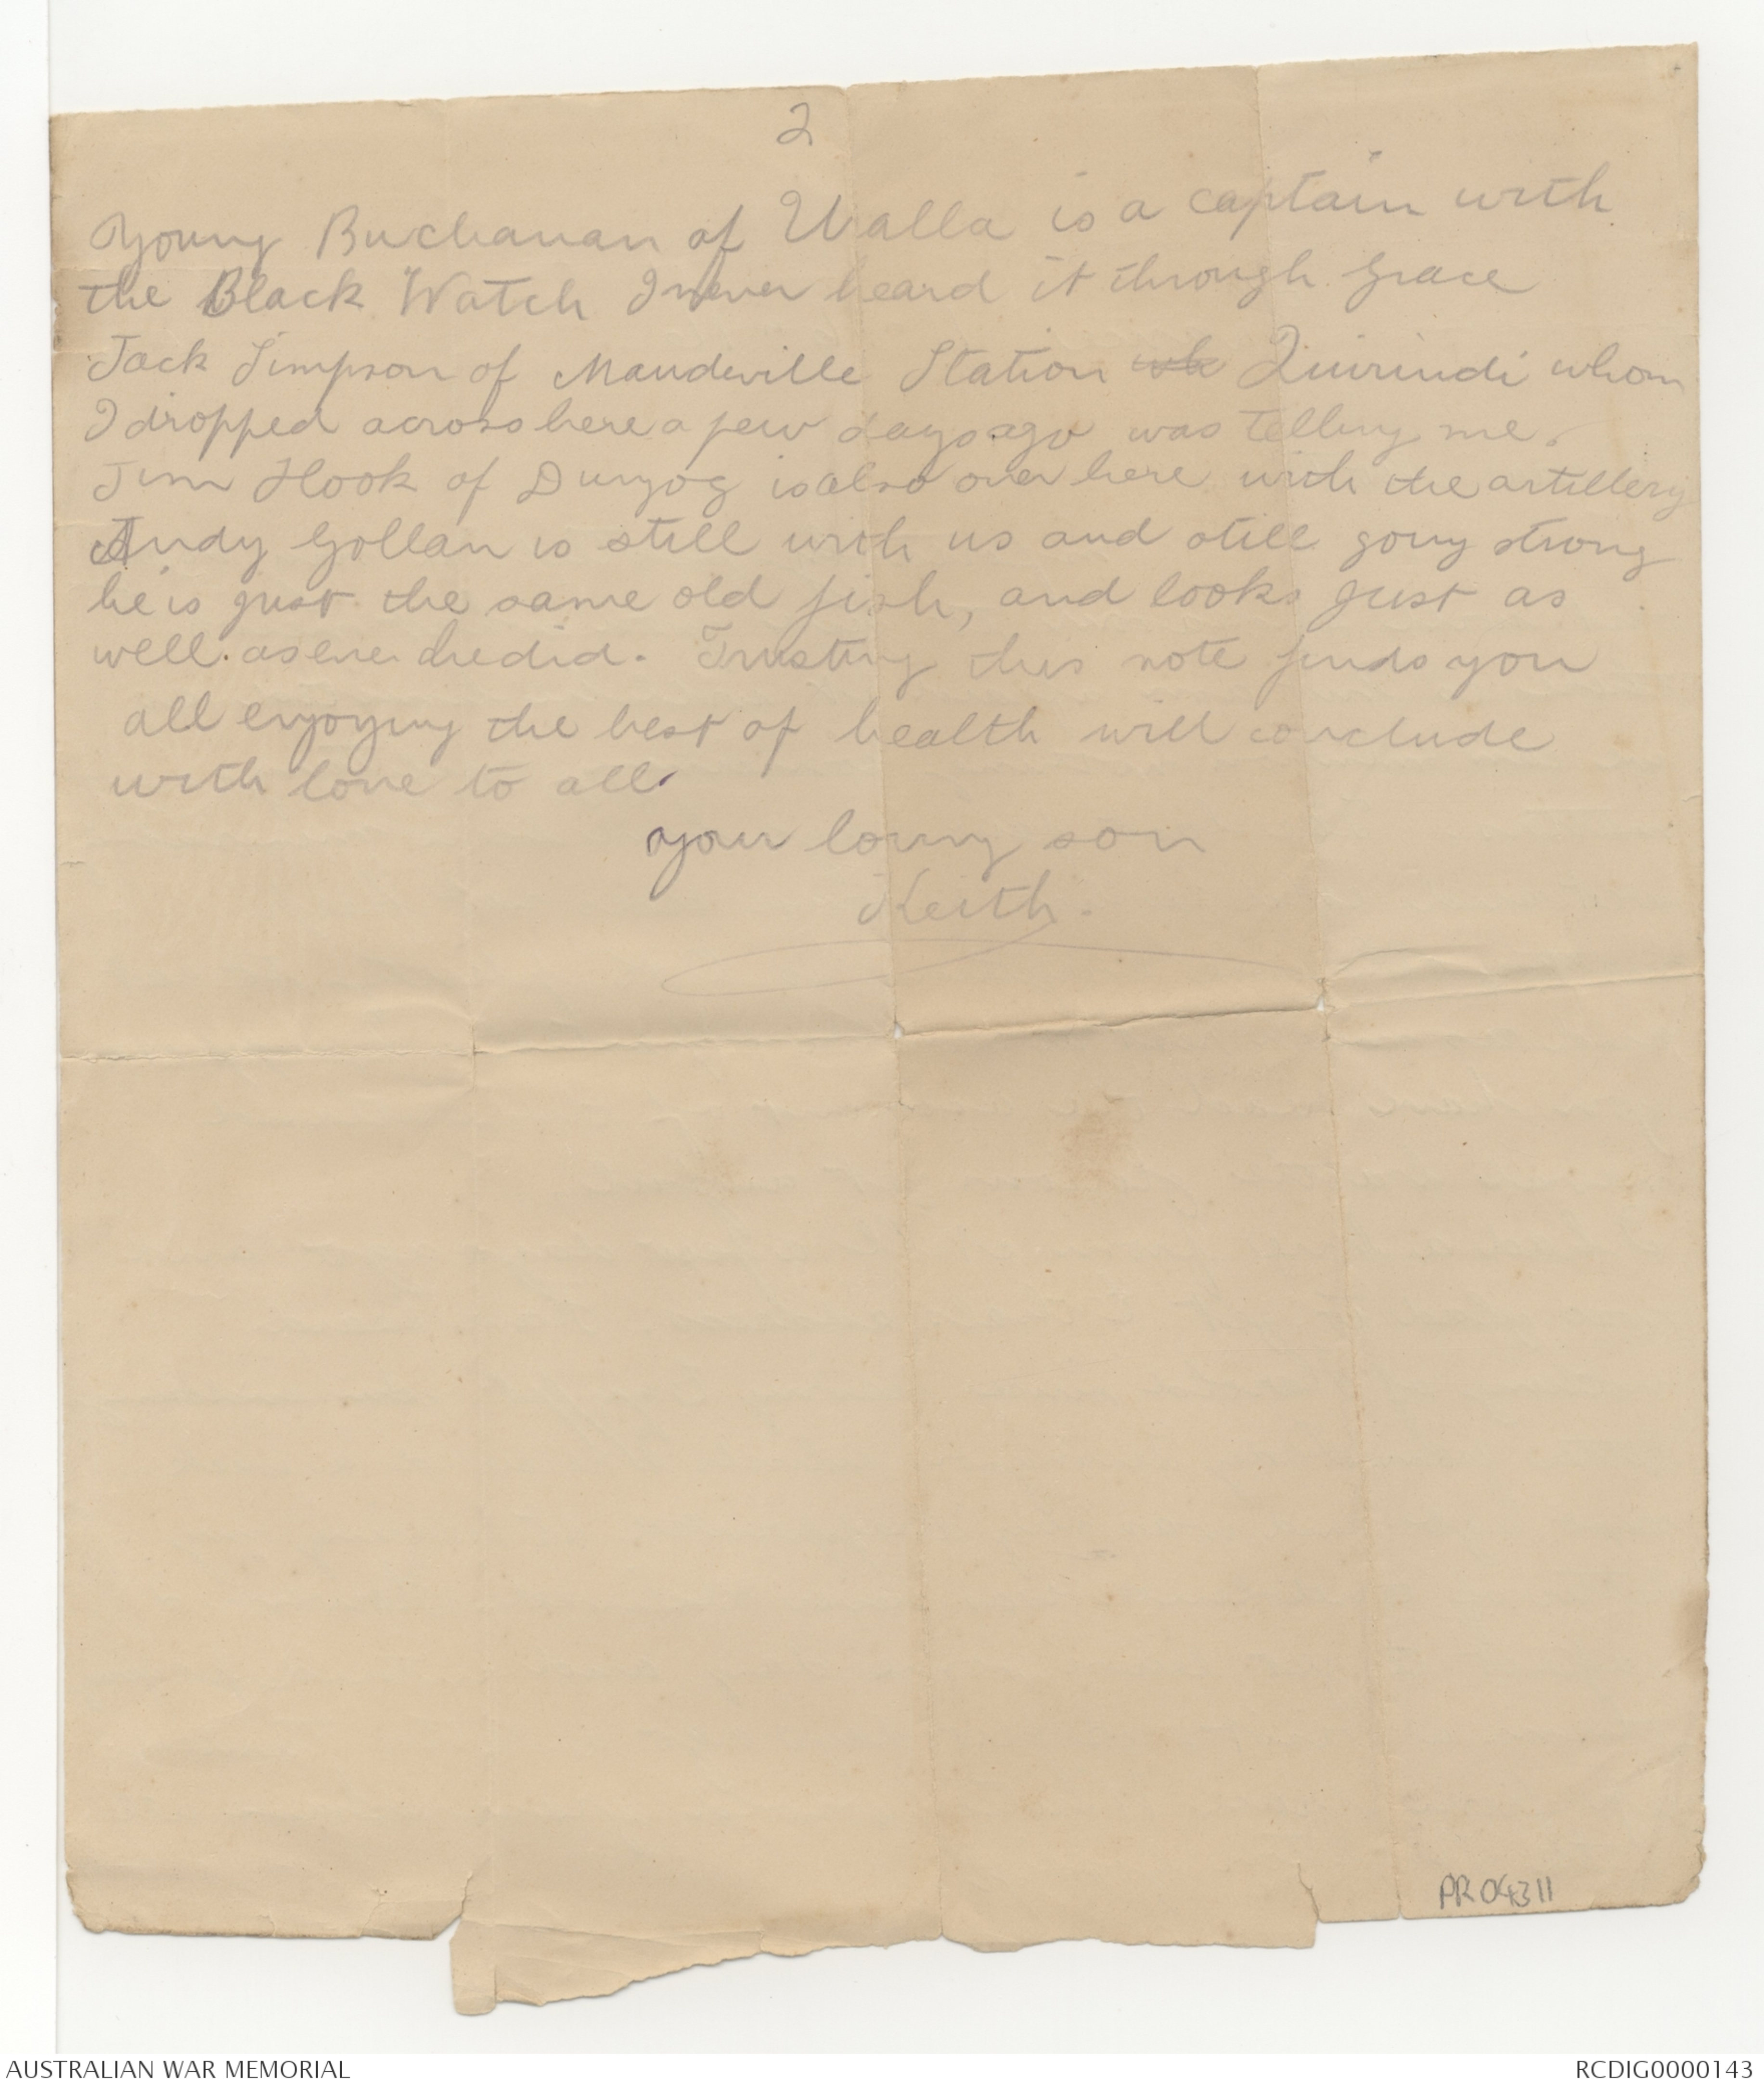 2
Young Buchanan of Uralla is a captain with
the Black Watch I never heard it through Grace
Jack Simpson of Mandeville Station wh Quirindi whom
I dropped across here a few days ago was telling me.
Jim Hook of Dungog is also over here with the artillery
Andy Gollan is still with us and still going strong
he is just the same old fish, and looks just as
well as ever he did. Trusting this note finds you
all enjoying the best of health will conclude
with love to all.
your loving son
Keith.
PR04311
AUSTRALIAN WAR MEMORIAL
RCDIG0000143